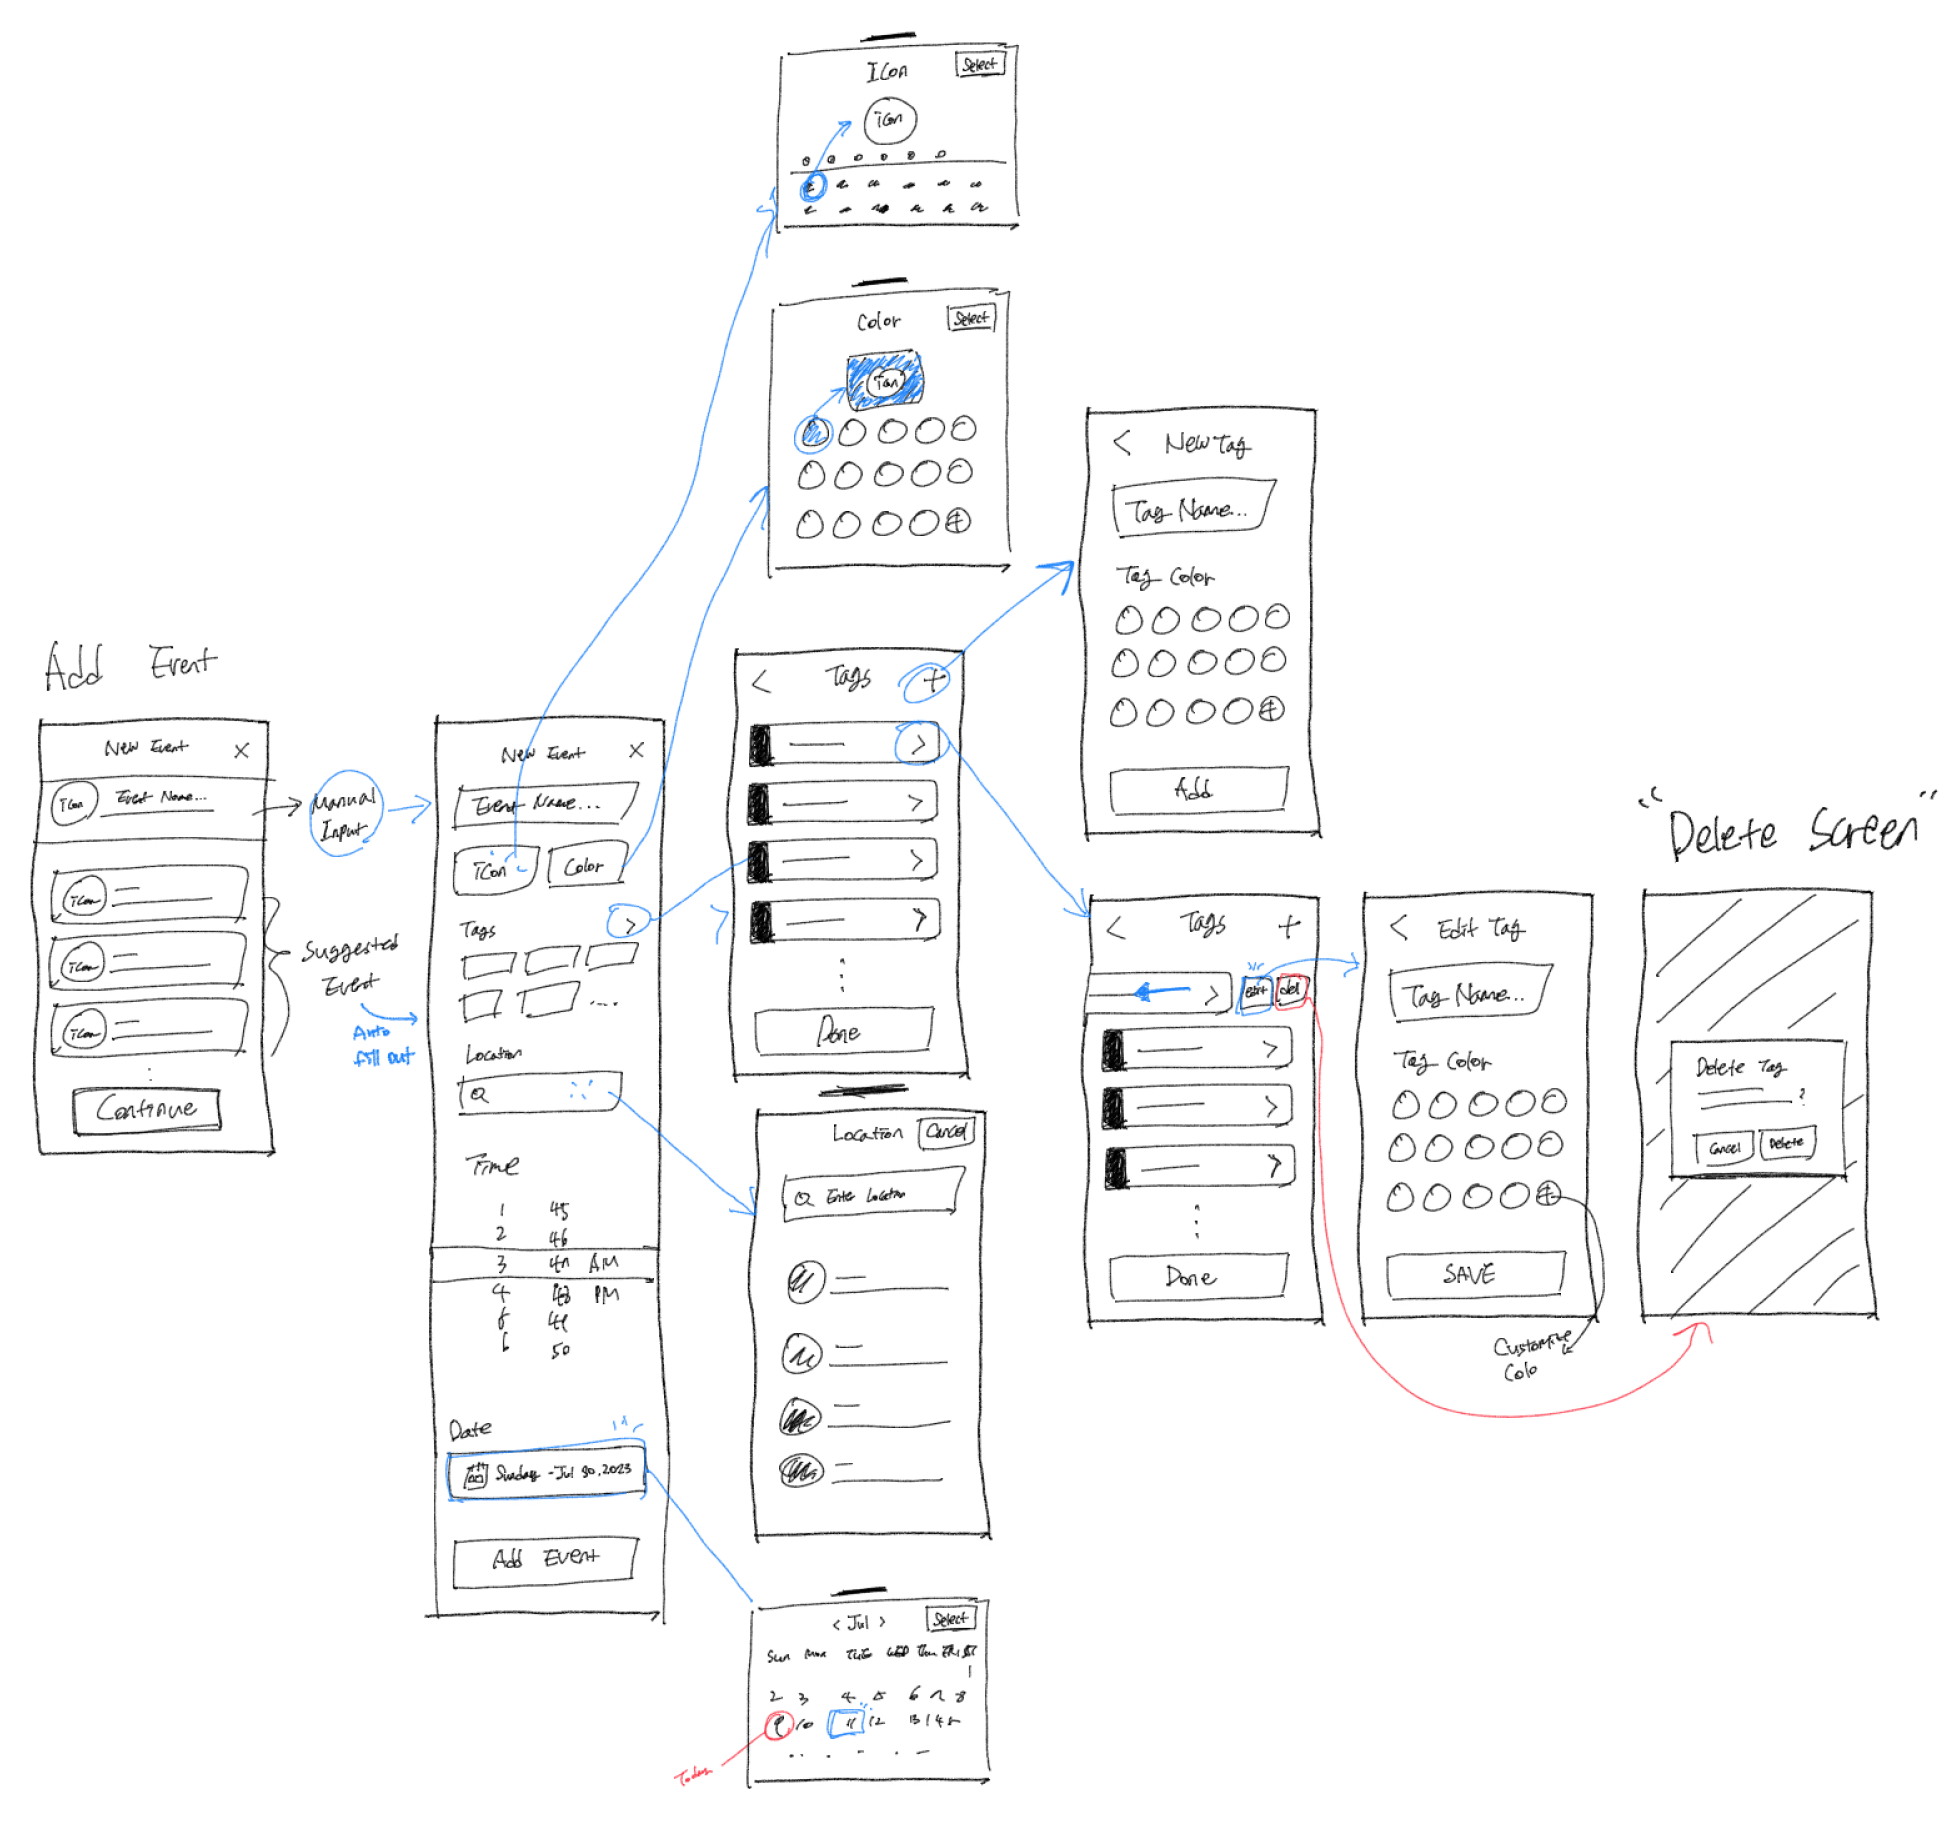 Add Event
New Event X
Icon Event Name...
Icon
Icon
Icon
Continue
Manual
Input
Suggested
Event
Auto
fill out
New Event X
Event Name...
Icon Color
Tags >
Location
Time
1 45
2 46
3 47 AM
4 48 PM
5 49
6 50
Date
Sunday - Jul 30, 2023
Add Event
Icon Select
icon
Color Select
Icon
< Tags +
>
>
>
>
Done
Location Cancel
Enter Location
< Jul > Select
Sun Mon TUE WED Thu FRI SAT
1
2 3 4 5 6 7 8
9 10 11 12 13 14 15
Today
< New Tag
Tag Name...
Tag Color
Add
< Tags +
> edit del
>
>
>
Done
< Edit Tag
Tag Name...
Tag Color
SAVE
Customize
Colo
"Delete Screen"
Delete Tag
?
Cancel Delete